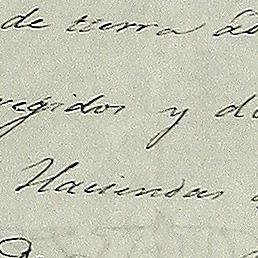 de tierra
regidos y do
Haciendas